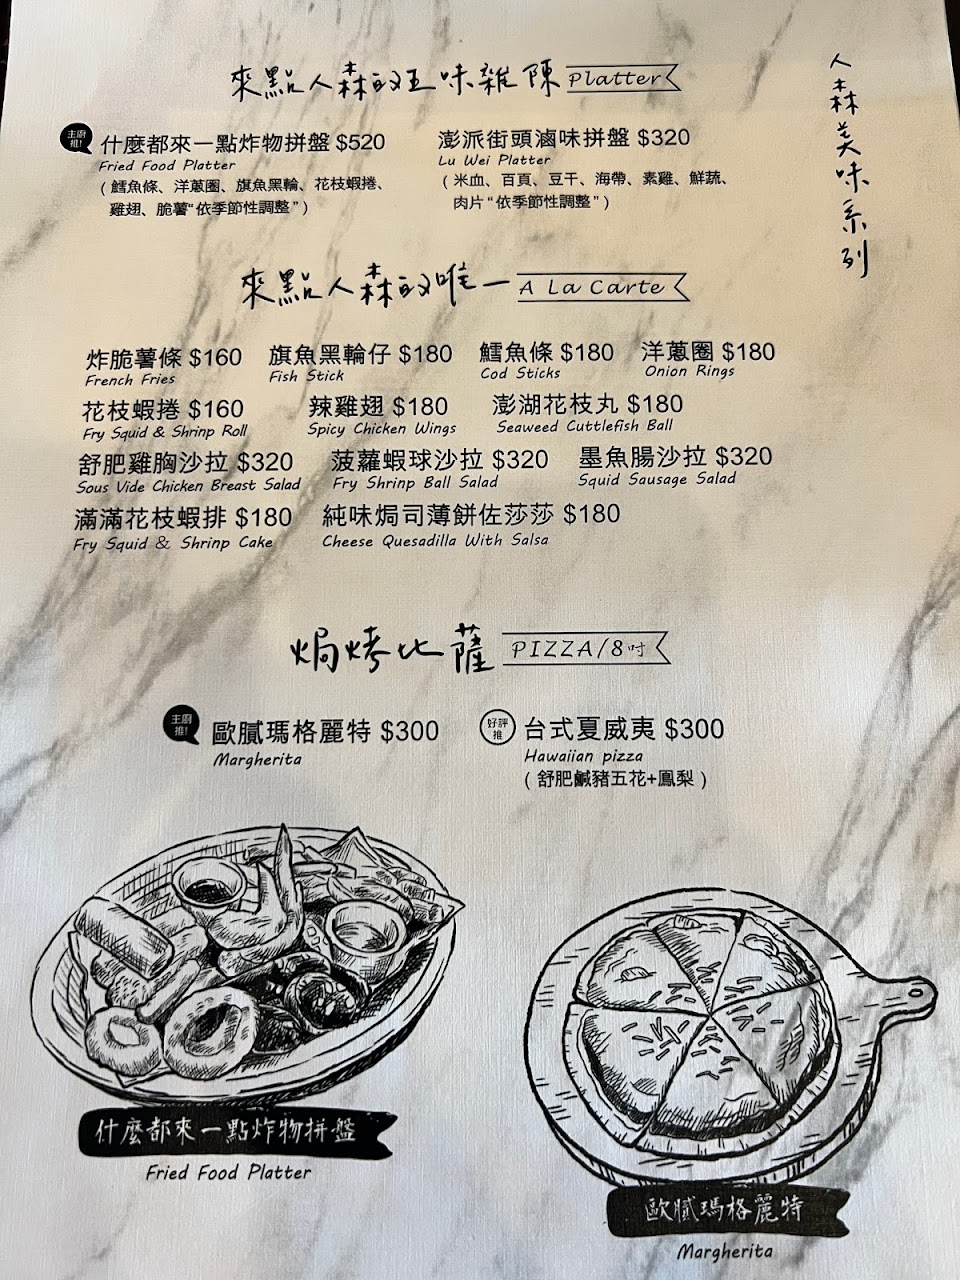 人森美味系列
來點人森的五味雜陳 Platter
主廚推! 什麼都來一點炸物拼盤 $520
Fried Food Platter
( 鱈魚條、洋蔥圈、旗魚黑輪、花枝蝦捲、
雞翅、脆薯“依季節性調整” )
澎派街頭滷味拼盤 $320
Lu Wei Platter
( 米血、百頁、豆干、海帶、素雞、鮮蔬、
肉片 “依季節性調整” )
來點人森的唯一 A La Carte
炸脆薯條 $160 旗魚黑輪仔 $180 鱈魚條 $180 洋蔥圈 $180
French Fries Fish Stick Cod Sticks Onion Rings
花枝蝦捲 $160 辣雞翅 $180 澎湖花枝丸 $180
Fry Squid & Shrinp Roll Spicy Chicken Wings Seaweed Cuttlefish Ball
舒肥雞胸沙拉 $320 菠蘿蝦球沙拉 $320 墨魚腸沙拉 $320
Sous Vide Chicken Breast Salad Fry Shrinp Ball Salad Squid Sausage Salad
滿滿花枝蝦排 $180 純味焗司薄餅佐莎莎 $180
Fry Squid & Shrinp Cake Cheese Quesadilla With Salsa
焗烤比薩 PIZZA/8吋
主廚推! 歐膩瑪格麗特 $300
Margherita
好評推 台式夏威夷 $300
Hawaiian pizza
( 舒肥鹹豬五花+鳳梨 )
什麼都來一點炸物拼盤
Fried Food Platter
歐膩瑪格麗特
Margherita